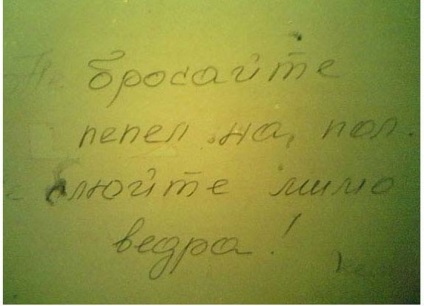 бросайте
пепел на, пол.
плюйте мимо
ведра!